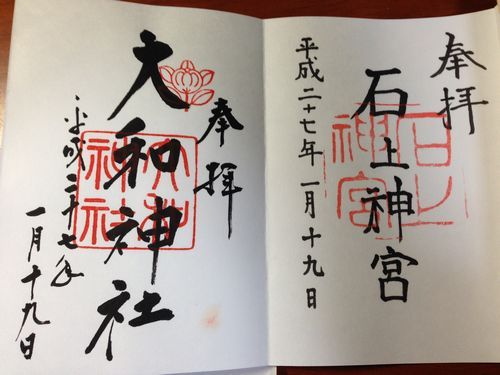 奉拝
石上神宮
平成二十七年一月十九日
石上神宮
奉拝
大和神社
平成二十七年
一月十九日
大和神社